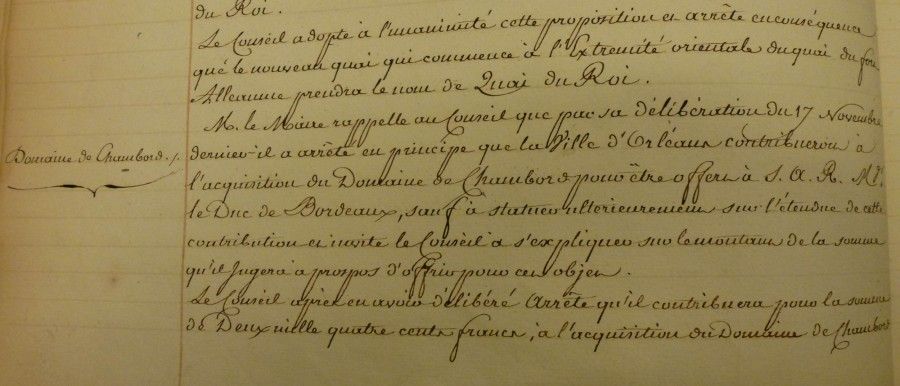 du Roi.
Le Conseil adopte à l'unanimité cette proposition et arrête en conséquence
que le nouveau quai qui commence à l'Extremité orientale du quai du fort
Alleaume prendra le nom de Quai du Roi.
M. le Maire rappelle au Conseil que par sa délibération du 17 Novembre
Domaine de Chambord.
dernier il a arrêté en principe que la Ville d'Orléans contribueroit à
l'acquisition du Domaine de Chambord pour être offert à S. A. R. Mgr.
le Duc de Bordeaux, sauf à statuer ultérieurement sur l'étendue de cette
contribution et invite le Conseil à s'expliquer sur le montant de la somme
qu'il Jugera à propos d'offrir pour cet objet.
Le Conseil après en avoir délibéré Arrête qu'il contribuera pour la somme
de Deux mille quatre cents francs, à l'acquisition du Domaine de Chambord